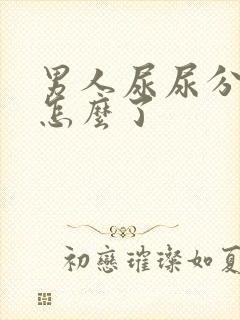 男人尿尿分
怎麼了
初戀璀璨如夏